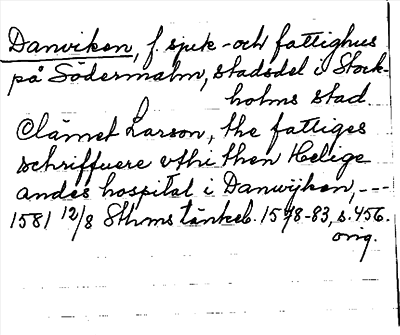 Danviken, f. sjuk- och fattighus
på Södermalm, stadsdel i Stock-
holms stad
Clämet Larson, the fattiges
schriffuere vthi then Helige
andes hospital i Danwijken, ---
1581 12/8 Sthms tänkeb. 1578-83, s. 456.
orig.